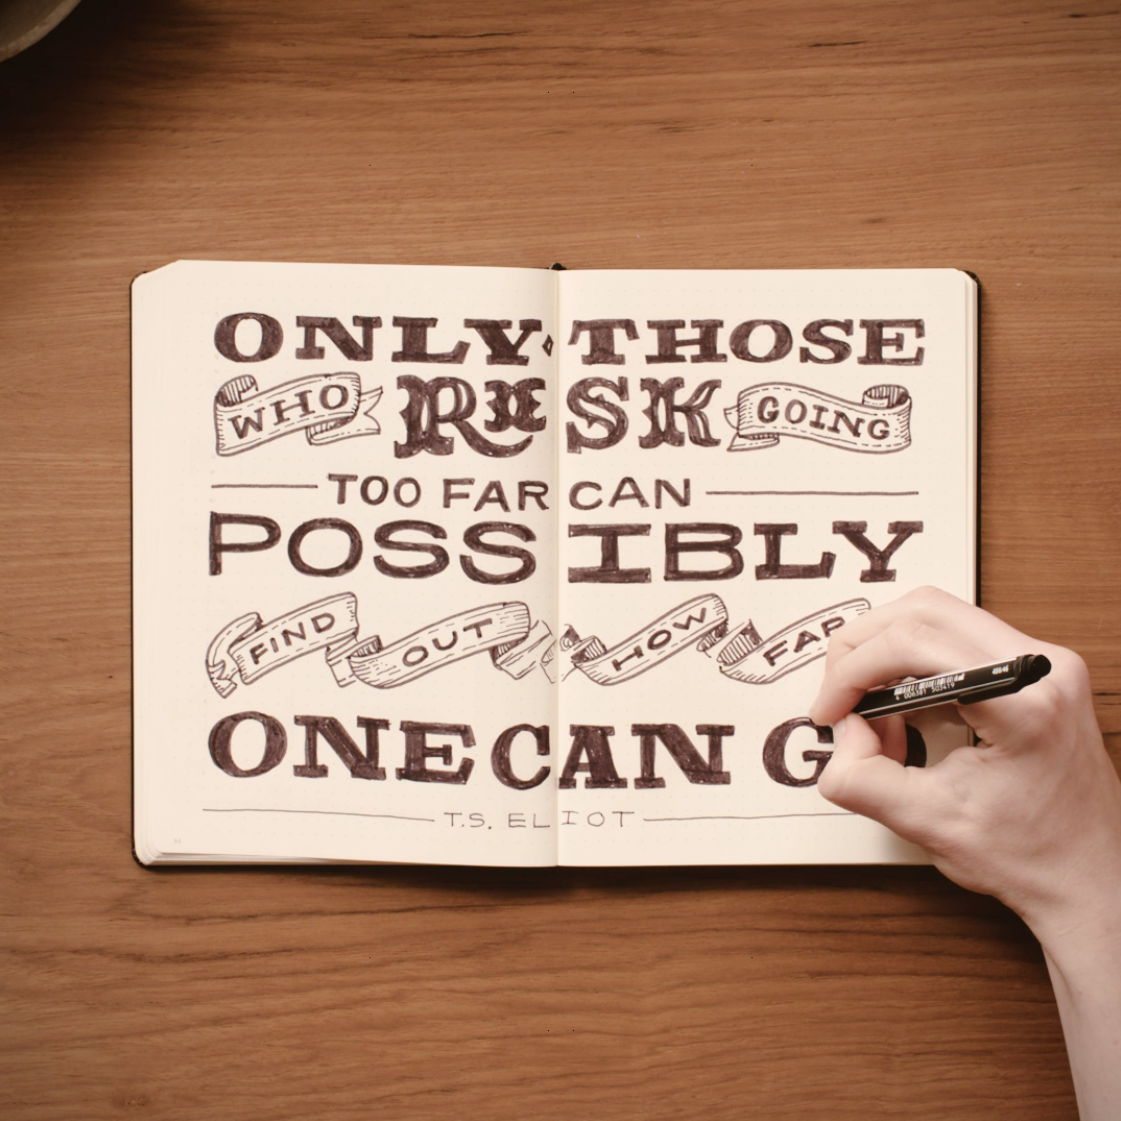 ONLY THOSE
WHO RISK GOING
TOO FAR CAN
POSSIBLY
FIND OUT HOW FAR
ONE CAN G
T.S. ELIOT